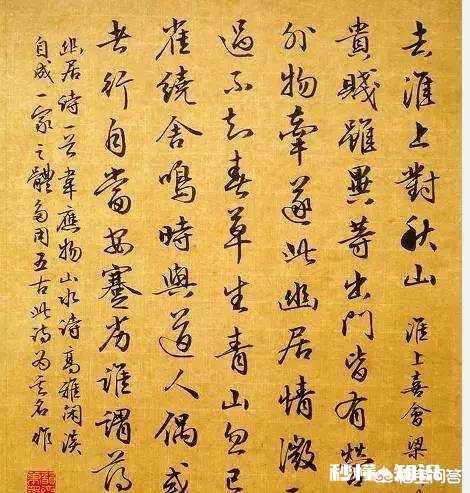 去淮上對秋山 淮上喜會梁
貴賤雖異等出門皆有營
外物牽遂此幽居情微
過不知春草生青山忽已
雀繞舍鳴時與道人偶或
者行自當安蹇劣誰謂薄
幽居詩一首韋應物山水詩高雅閑淡
自成一家之體多用五古此詩为其名作
秒懂知识